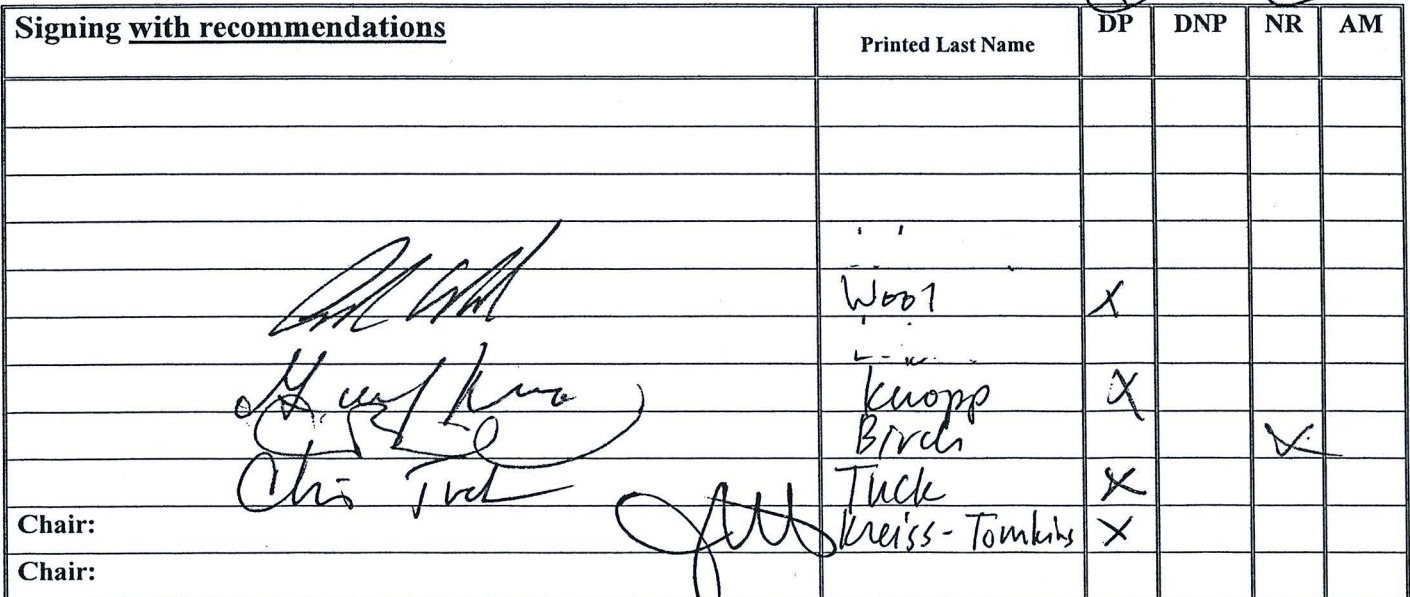 Signing with recommendations
Printed Last Name
DP DNP NR AM
Wool X
Knopp X
Birch X
Chris Tuck Tuck X
Chair: Kreiss-Tomkins X
Chair: